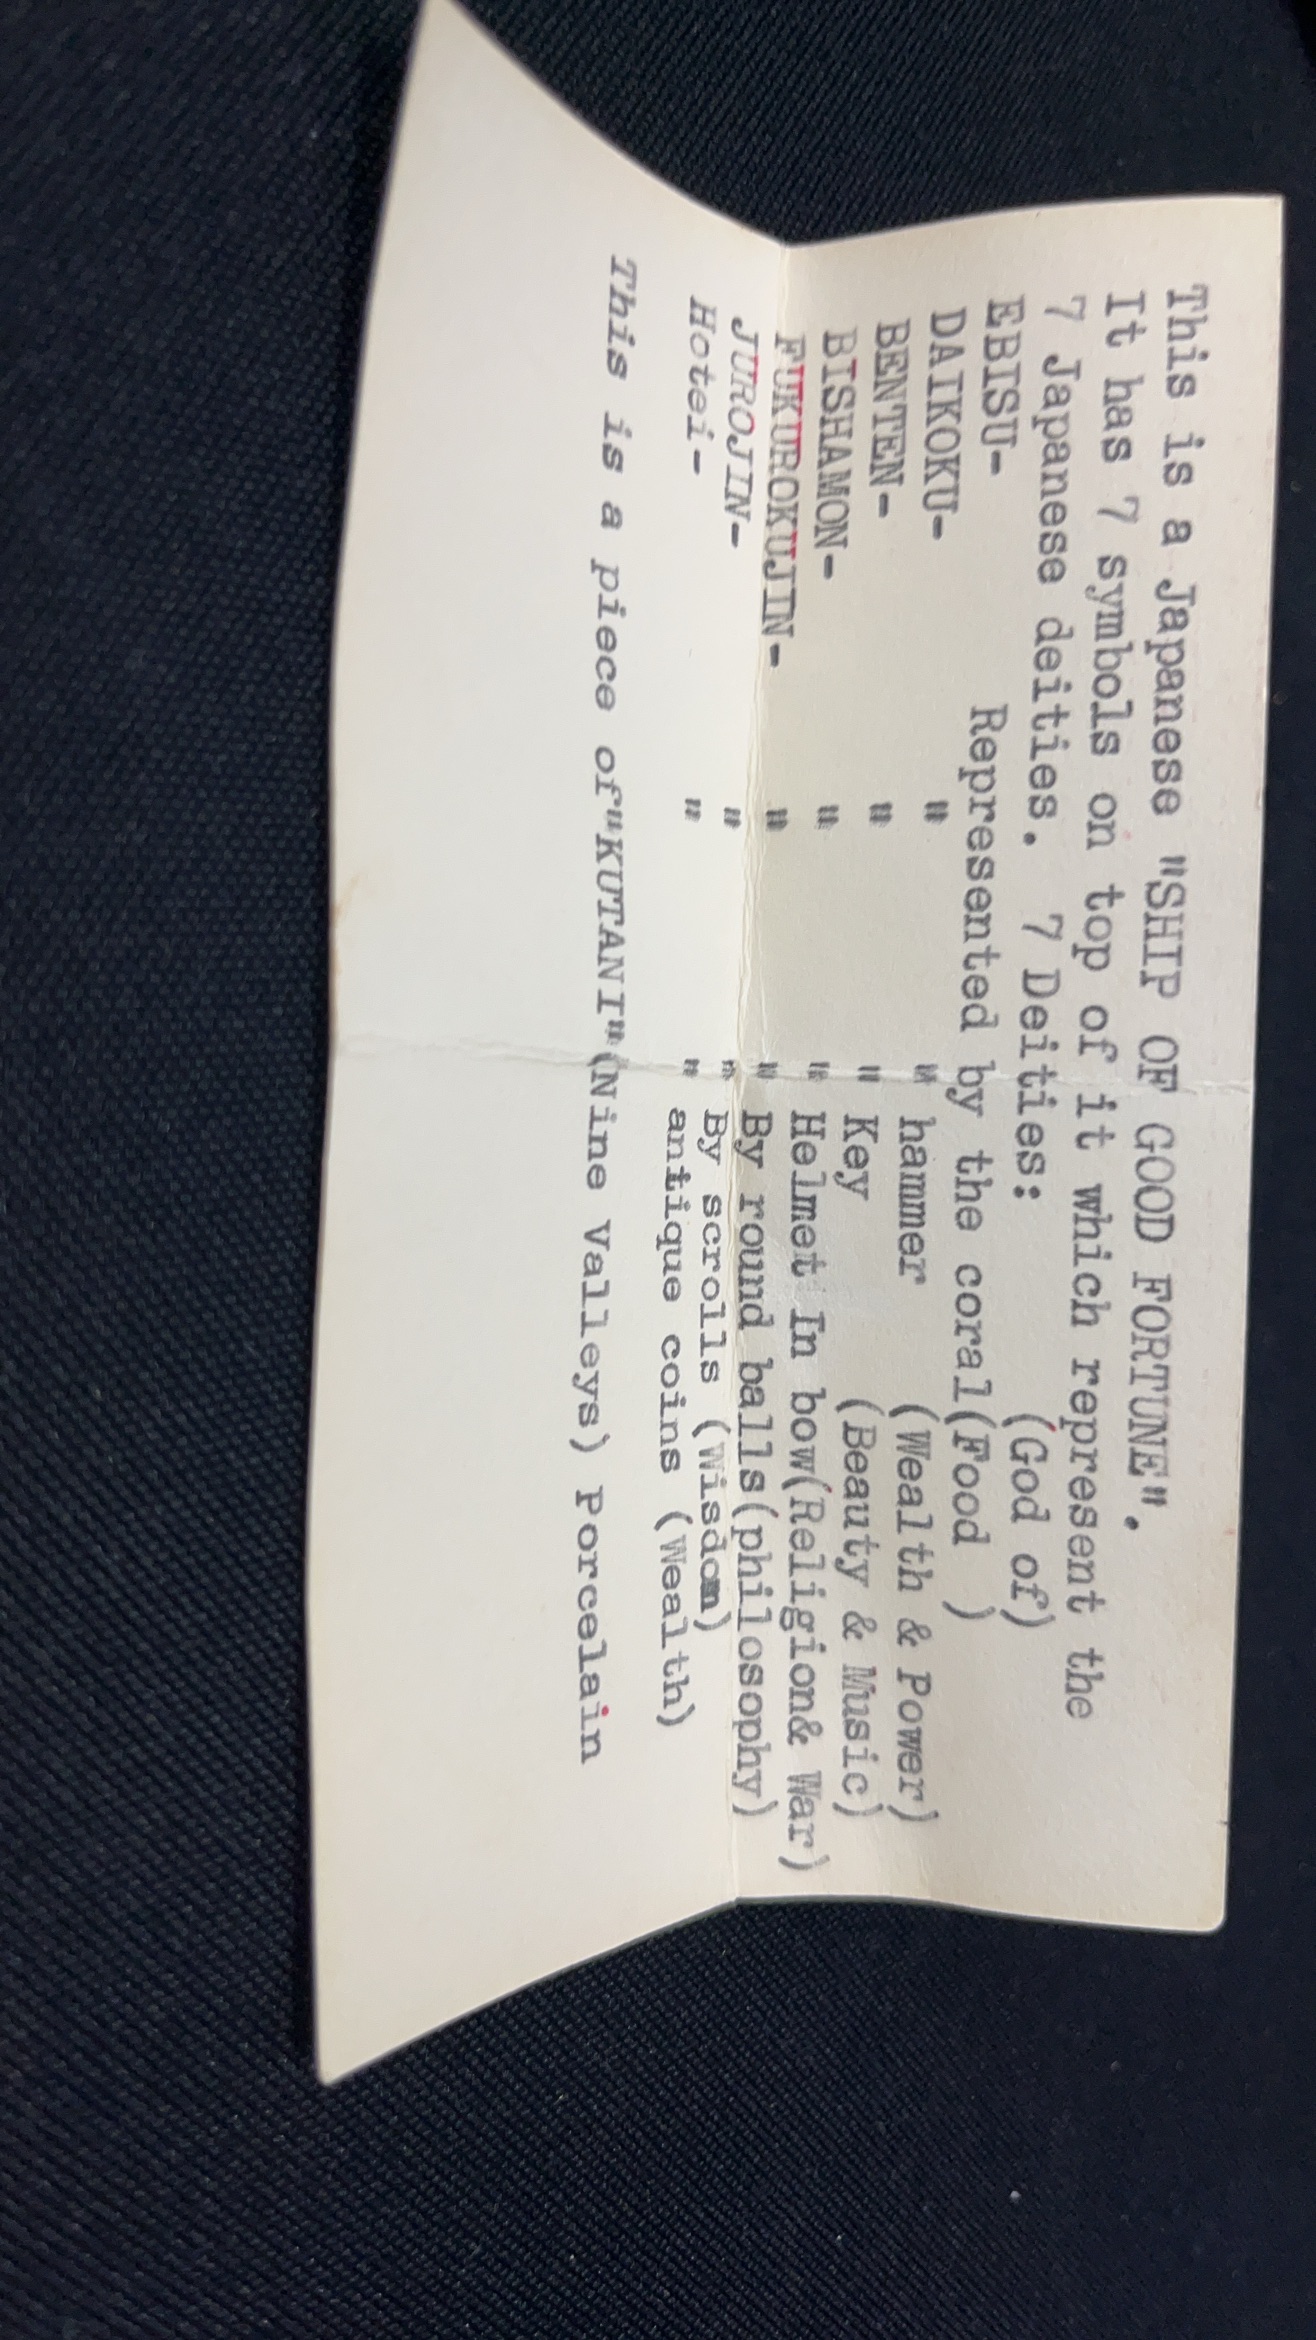 This is a Japanese "SHIP OF GOOD FORTUNE".
It has 7 symbols on top of it which represent the
7 Japanese deities. 7 Deities: (God of)
EBISU- Represented by the coral(Food )
DAIKOKU- " " hammer (Wealth & Power)
BENTEN- " " Key (Beauty & Music)
BISHAMON- " " Helmet In bow(Religion& War)
FUKUROKUJIN- " " By round balls(philosophy)
JUROJIN- " " By scrolls (Wisdom)
Hotei- " " antique coins (Wealth)
This is a piece of"KUTANI"(Nine Valleys) Porcelain